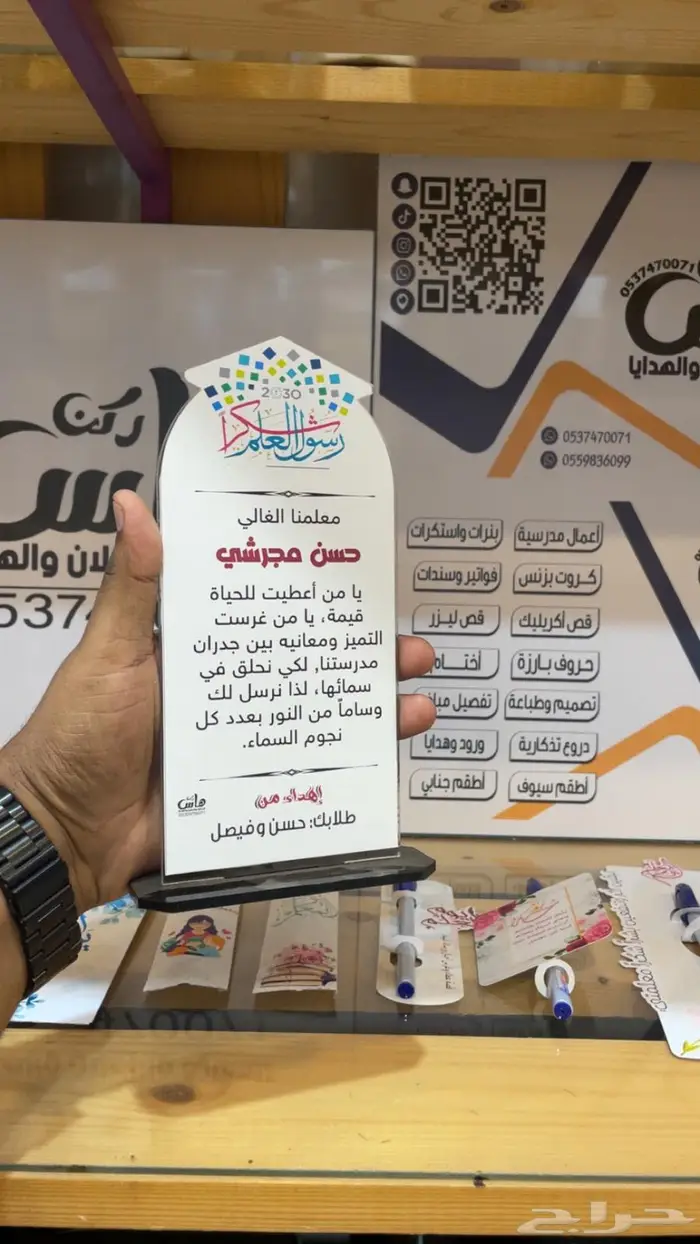 2030
شكرا رسول العلم
معلمنا الغالي
حسن مجرشي
يا من أعطيت للحياة
قيمة، يا من غرست
التميز ومعانيه بين جدران
مدرستنا, لكي نحلق في
سمائها، لذا نرسل لك
وساماً من النور بعدد كل
نجوم السماء.
إهداء من
طلابك: حسن وفيصل
هاس
ركن
لان واله
0537470071
والهدايا
0537470071
0559836099
أعمال مدرسية
بنرات واستكرات
كروت بزنس
فواتير وسندات
قص أكريليك
قص ليزر
حروف بارزة
أختام
تصميم وطباعة
تفصيل مبا
دروع تذكارية
ورود وهدايا
أطقم سيوف
أطقم جنابي
حراج